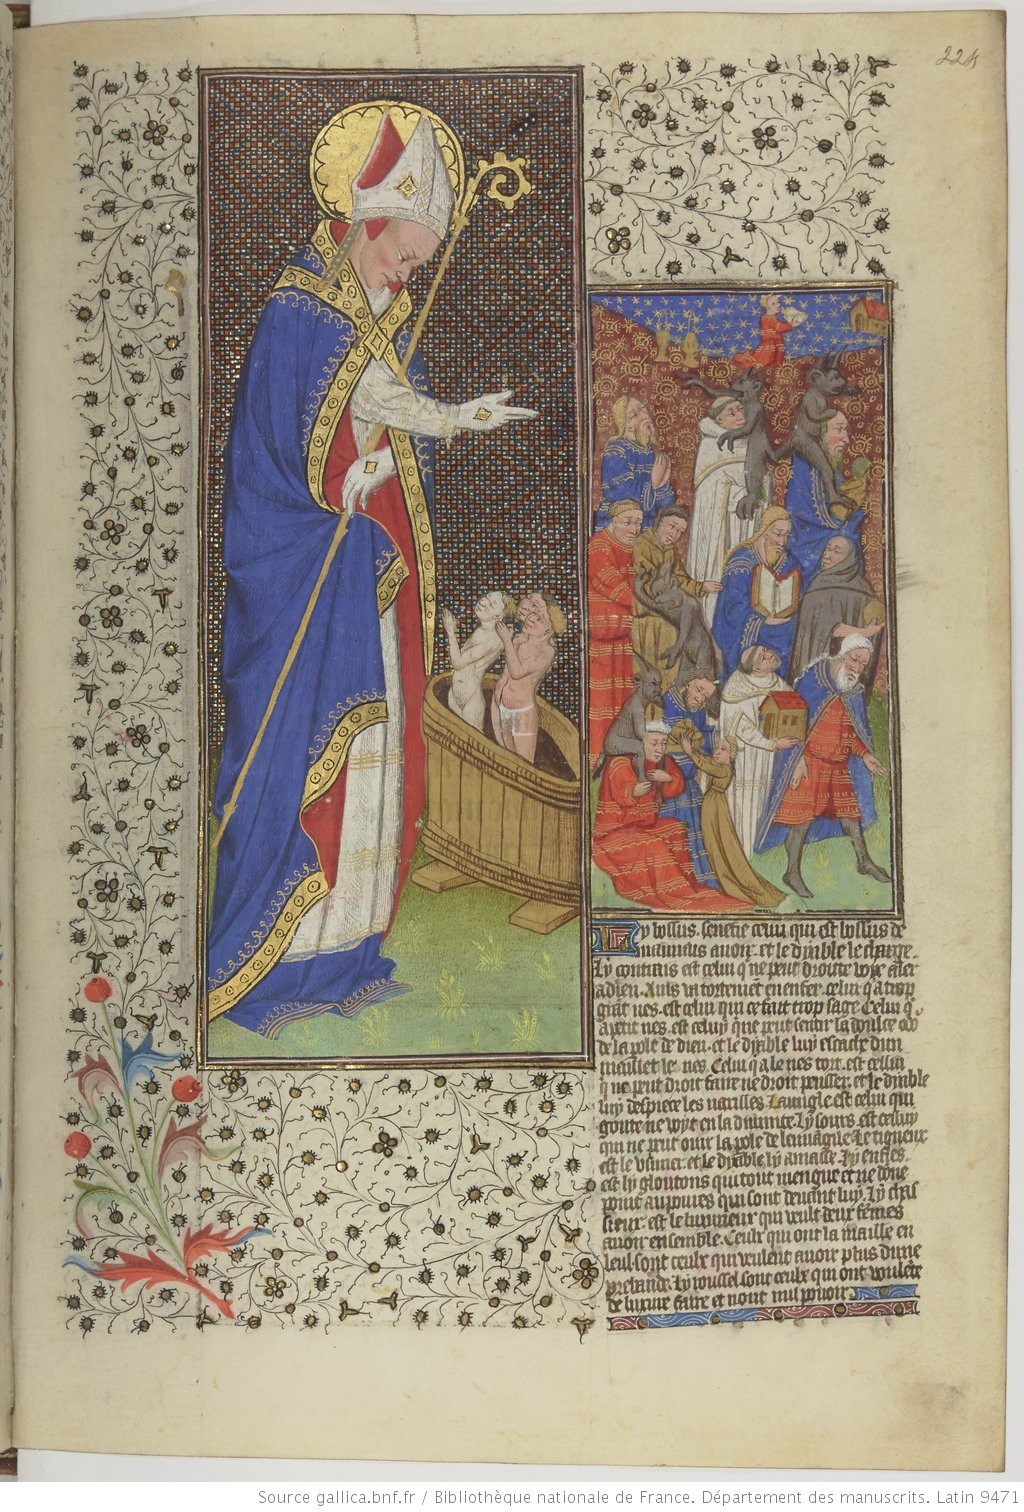 224
Ly bossus senefie celui qui est bossus de
mauvais avoir et le dyable le charge.
Ly contrais est celui q̃ ne peut droite voye aler
a dieu. Mis
grãt nes. est celui qui ce fait trop sage Celui q̃
a petit nes. est celuy que peut sentir la doulce
de la pole de dieu. et le dyable luy escache dun
maillet le nes. Celui q̃ a le nes tort. est cellui
q̃ ne peut droit faire ne droit penser. et le dyable
luy despiece les narilles Lavugle. est celui qui
goute ne voyt en la divinite. Ly sours. est celluy
qui ne peut ouir la pole de Le tigneux
est le usurier. et le dyable ly amasse. Ly enfles.
est ly gloutons qui tout mengue et ne done
point aux povres qui sont devant luy. Ly chas
sieux. est le luxurieux qui veult deux fẽmes
avoir ensemble. Ceulx qui ont la maille en
leul. sont ceulx qui veulent avoir plus dune
prebande. Ly sont ceulx qui ont voulẽte
de luxure faire et nont nul pouoir
Source gallica.bnf.fr / Bibliothèque nationale de France. Département des manuscrits. Latin 9471